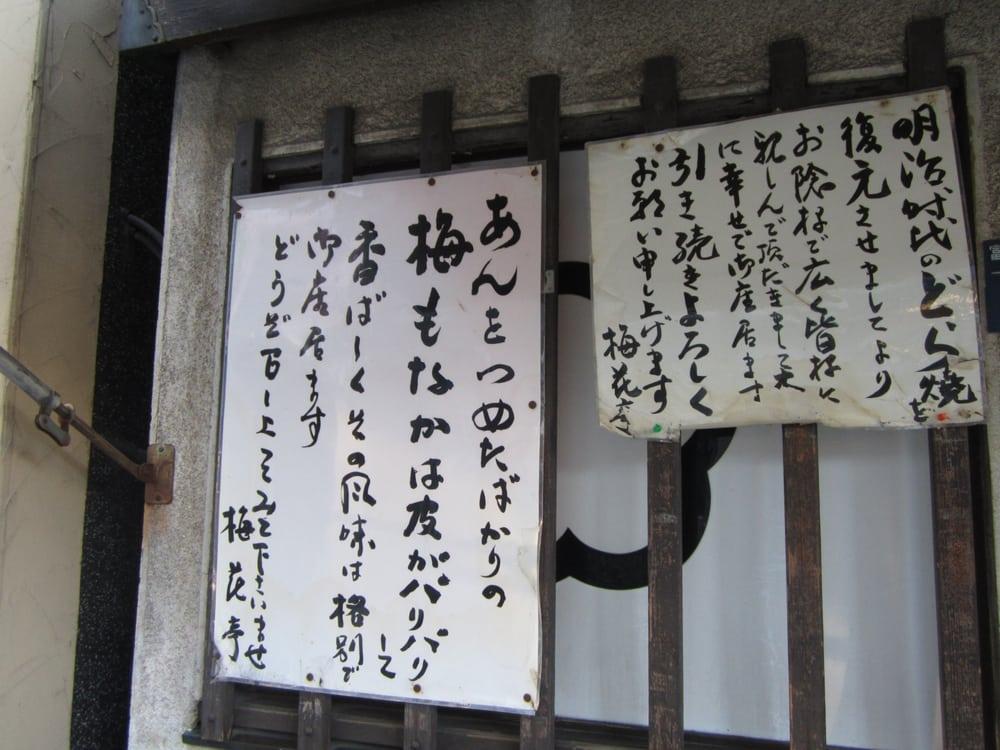 明治時代のどら焼を
復元させましてより
お陰様で広く皆様に
親しんで頂だきまして大
に幸せで御座居ます
引き続きよろしく
お願い申し上げます
梅花亭
あんをつめたばかりの
梅もなかは皮がパリパリ
して
香ばしくその風味は格別で
御座居ます
どうぞ召し上って見て下さいませ
梅花亭